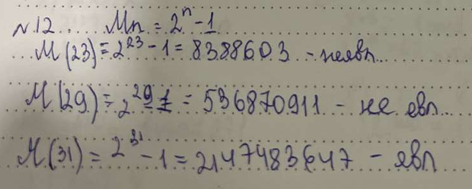 №12. Mn = 2ⁿ - 1
M(23) = 2²³ - 1 = 8388603 - не явл.
M(29) = 2²⁹ - 1 = 536870911 - не явл.
M(31) = 2³¹ - 1 = 2147483647 - явл